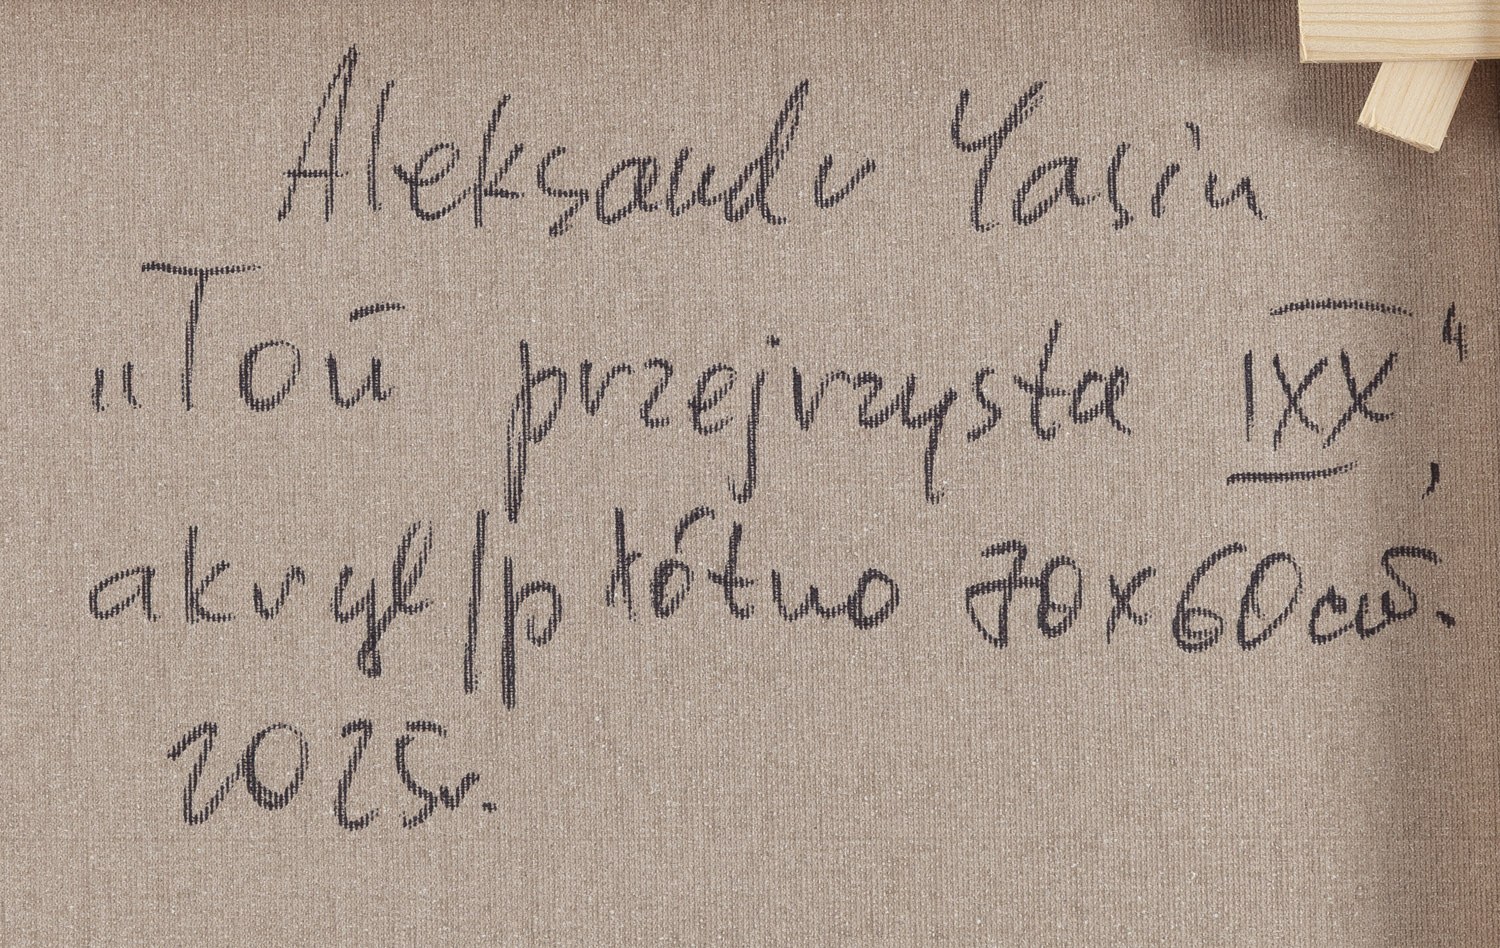 Aleksandr Yasin
„Toń przejrzysta IXX”,
akryl/płótno 70x60cm.
2025r.